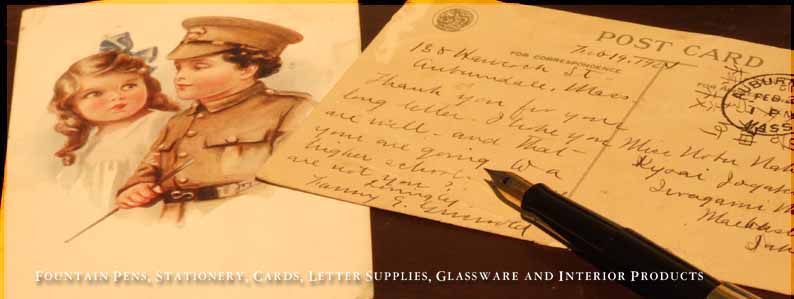 POST CARD
FOR CORRESPONDENCE
188 Hancock St
Auburndale, Mass.
Thank you for your
long letter. I hope you
are well - and that
your are going to a
higher school
are not you?
Lovingly
Fanny E. Griswold
Miss Nobu
Kyoai
Iwagami
Maebashi
AUBURN
FEB
1 PM
MASS
FOUNTAIN PENS, STATIONERY, CARDS, LETTER SUPPLIES, GLASSWARE AND INTERIOR PRODUCTS